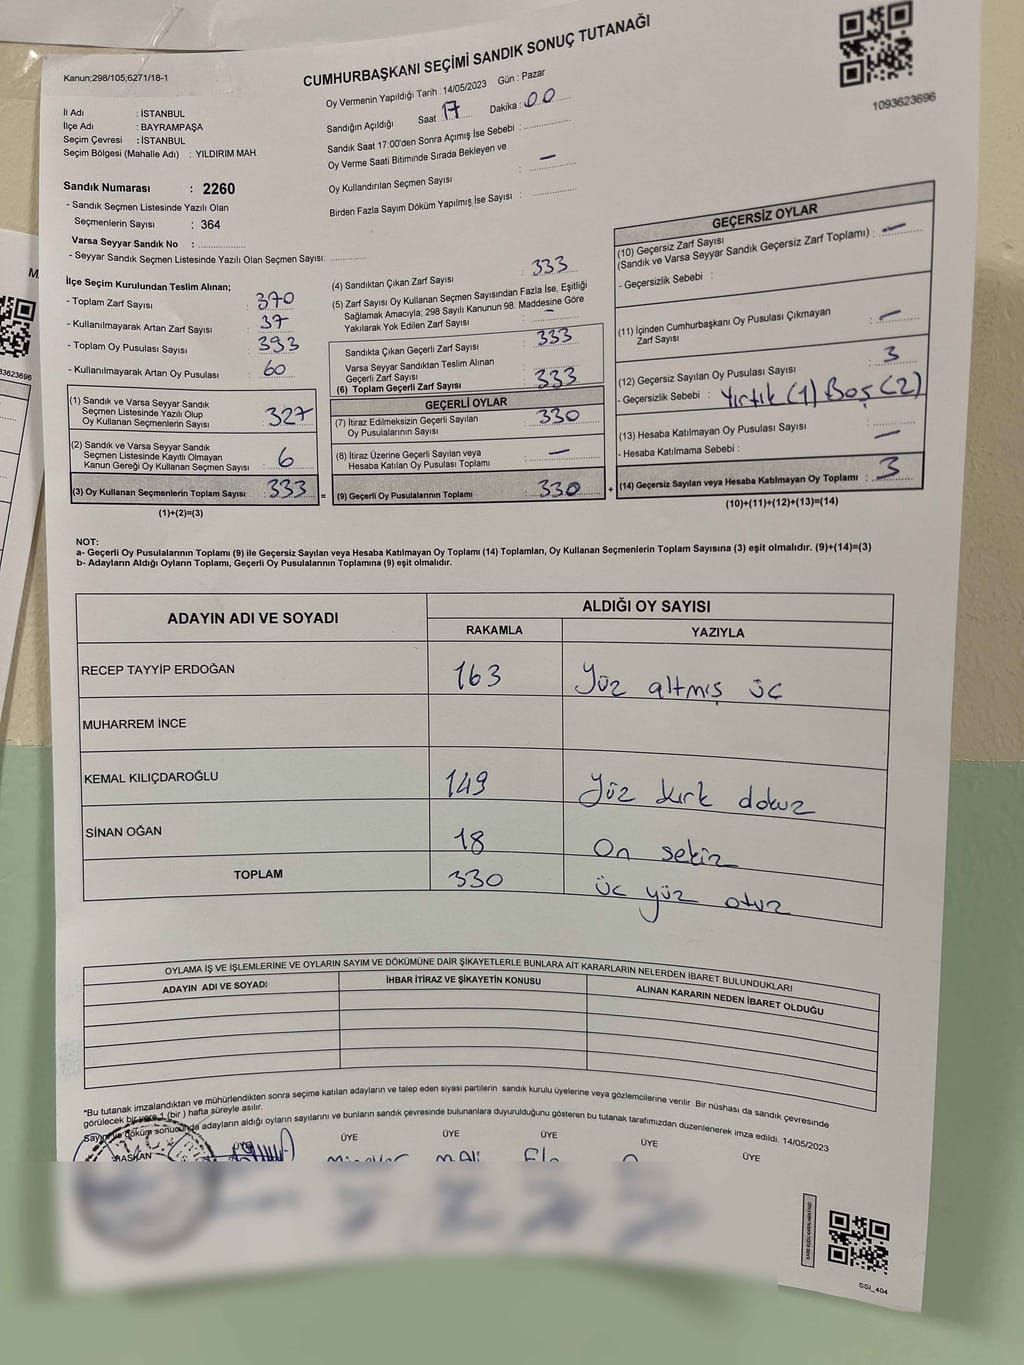 Kanun;298/105;6271/18-1
CUMHURBAŞKANI SEÇİMİ SANDIK SONUÇ TUTANAĞI
1093623696
İl Adı : İSTANBUL
İlçe Adı : BAYRAMPAŞA
Seçim Çevresi : İSTANBUL
Seçim Bölgesi (Mahalle Adı) : YILDIRIM MAH.
Oy Vermenin Yapıldığı Tarih : 14/05/2023 Gün : Pazar
Sandığın Açıldığı Saat 17 Dakika : 00
Sandık Saat 17:00'den Sonra Açımış İse Sebebi :
Oy Verme Saati Bitiminde Sırada Bekleyen ve
Oy Kullandırılan Seçmen Sayısı : —
Birden Fazla Sayım Döküm Yapılmış İse Sayısı :
Sandık Numarası : 2260
- Sandık Seçmen Listesinde Yazılı Olan
Seçmenlerin Sayısı : 364
Varsa Seyyar Sandık No :
- Seyyar Sandık Seçmen Listesinde Yazılı Olan Seçmen Sayısı:
İlçe Seçim Kurulundan Teslim Alınan;
- Toplam Zarf Sayısı : 370
- Kullanılmayarak Artan Zarf Sayısı : 37
- Toplam Oy Pusulası Sayısı : 393
- Kullanılmayarak Artan Oy Pusulası : 60
(1) Sandık ve Varsa Seyyar Sandık
Seçmen Listesinde Yazılı Olup
Oy Kullanan Seçmenlerin Sayısı : 327
(2) Sandık ve Varsa Seyyar Sandık
Seçmen Listesinde Kayıtlı Olmayan
Kanun Gereği Oy Kullanan Seçmen Sayısı : 6
(3) Oy Kullanan Seçmenlerin Toplam Sayısı : 333 =
(1)+(2)=(3)
(4) Sandıktan Çıkan Zarf Sayısı : 333
(5) Zarf Sayısı Oy Kullanan Seçmen Sayısından Fazla İse, Eşitliği
Sağlamak Amacıyla; 298 Sayılı Kanunun 98. Maddesine Göre
Yakılarak Yok Edilen Zarf Sayısı : —
Sandıkta Çıkan Geçerli Zarf Sayısı : 333
Varsa Seyyar Sandıktan Teslim Alınan
Geçerli Zarf Sayısı
(6) Toplam Geçerli Zarf Sayısı : 333
GEÇERLİ OYLAR
(7) İtiraz Edilmeksizin Geçerli Sayılan
Oy Pusulalarının Sayısı : 330
(8) İtiraz Üzerine Geçerli Sayılan veya
Hesaba Katılan Oy Pusulası Toplamı : —
(9) Geçerli Oy Pusulalarının Toplamı : 330 +
GEÇERSİZ OYLAR
(10) Geçersiz Zarf Sayısı
(Sandık ve Varsa Seyyar Sandık Geçersiz Zarf Toplamı) : —
- Geçersizlik Sebebi :
(11) İçinden Cumhurbaşkanı Oy Pusulası Çıkmayan
Zarf Sayısı : —
(12) Geçersiz Sayılan Oy Pusulası Sayısı : 3
- Geçersizlik Sebebi : Yırtık (1) Boş (2)
(13) Hesaba Katılmayan Oy Pusulası Sayısı :
- Hesaba Katılmama Sebebi : —
(14) Geçersiz Sayılan veya Hesaba Katılmayan Oy Toplamı : 3
(10)+(11)+(12)+(13)=(14)
NOT:
a- Geçerli Oy Pusulalarının Toplamı (9) ile Geçersiz Sayılan veya Hesaba Katılmayan Oy Toplamı (14) Toplamları, Oy Kullanan Seçmenlerin Toplam Sayısına (3) eşit olmalıdır. (9)+(14)=(3)
b- Adayların Aldığı Oyların Toplamı, Geçerli Oy Pusulalarının Toplamına (9) eşit olmalıdır.
ADAYIN ADI VE SOYADI ALDIĞI OY SAYISI
RAKAMLA YAZIYLA
RECEP TAYYİP ERDOĞAN 163 Yüz altmış üc
MUHARREM İNCE
KEMAL KILIÇDAROĞLU 149 Yüz kırk dokuz
SİNAN OĞAN 18 On sekiz
TOPLAM 330 üc yüz otuz
OYLAMA İŞ VE İŞLEMLERİNE VE OYLARIN SAYIM VE DÖKÜMÜNE DAİR ŞİKAYETLERLE BUNLARA AİT KARARLARIN NELERDEN İBARET BULUNDUKLARI
ADAYIN ADI VE SOYADI İHBAR İTİRAZ VE ŞİKAYETİN KONUSU ALINAN KARARIN NEDEN İBARET OLDUĞU
*Bu tutanak imzalandıktan ve mühürlendikten sonra seçime katılan adayların ve talep eden siyasi partilerin sandık kurulu üyelerine veya gözlemcilerine verilir. Bir nüshası da sandık çevresinde
görülecek bir yere 1 (bir) hafta süreyle asılır.
Sayım ve döküm sonucunda adayların aldığı oyların sayılarını ve bunların sandık çevresinde bulunanlara duyurulduğunu gösteren bu tutanak tarafımızdan düzenlenerek imza edildi. 14/05/2023
BAŞKAN ÜYE ÜYE ÜYE ÜYE ÜYE ÜYE
M.Ali
SSİ_404